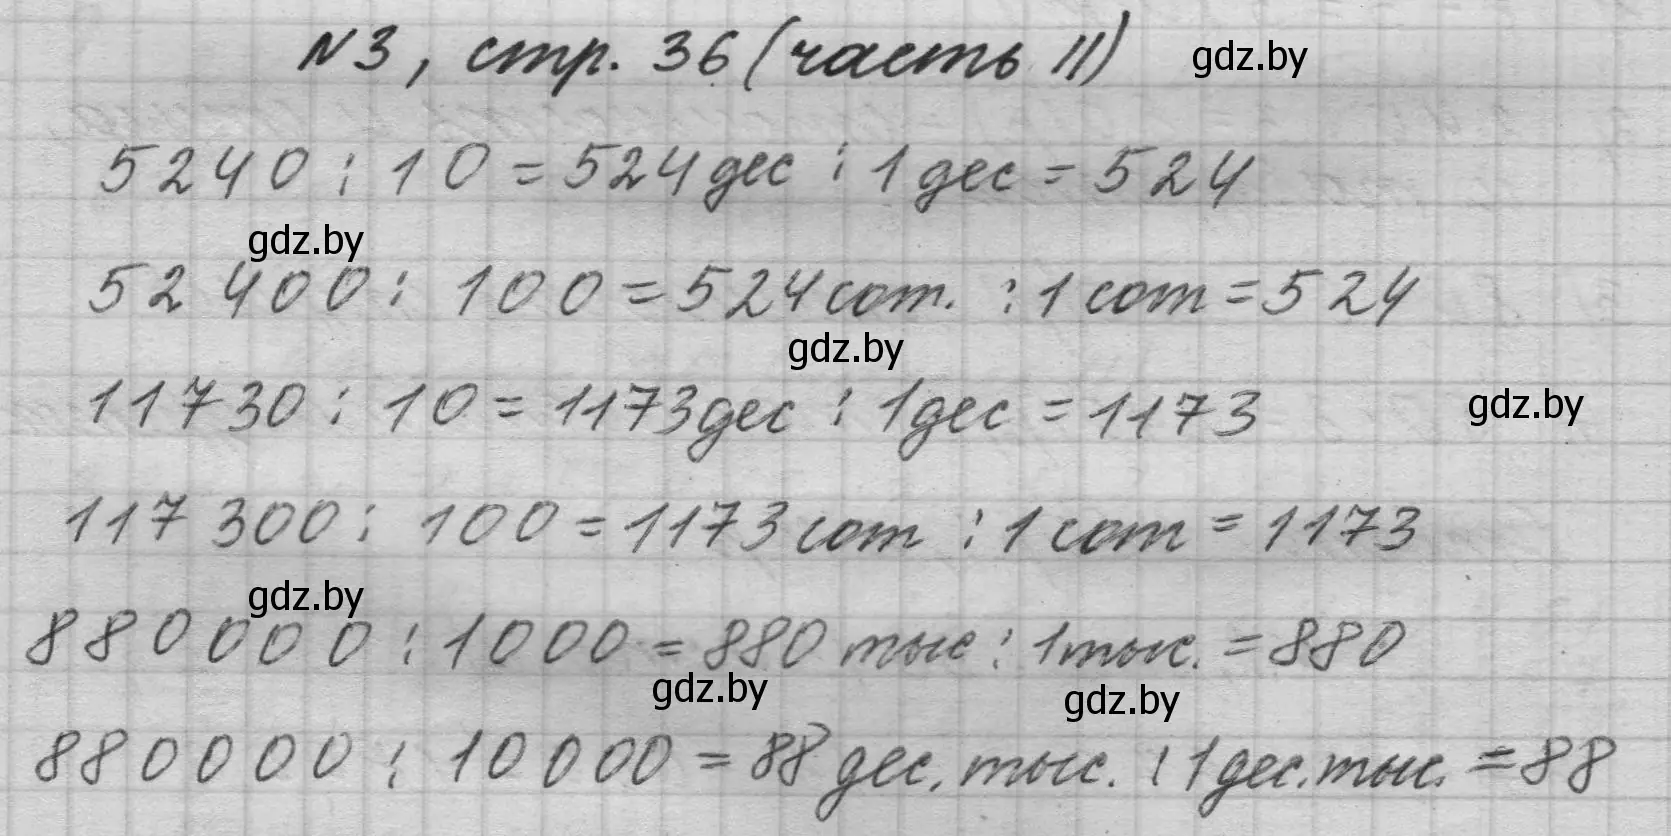 №3, стр. 36 (часть II) gdz.by
5240 : 10 = 524 дес : 1 дес = 524
gdz.by
52 400 : 100 = 524 сот. : 1 сот = 524
gdz.by
11730 : 10 = 1173 дес : 1 дес = 1173 gdz.by
117 300 : 100 = 1173 сот : 1 сот = 1173
gdz.by
880000 : 1000 = 880 тыс : 1 тыс. = 880
gdz.by gdz.by
880000 : 10000 = 88 дес. тыс. : 1 дес. тыс. = 88